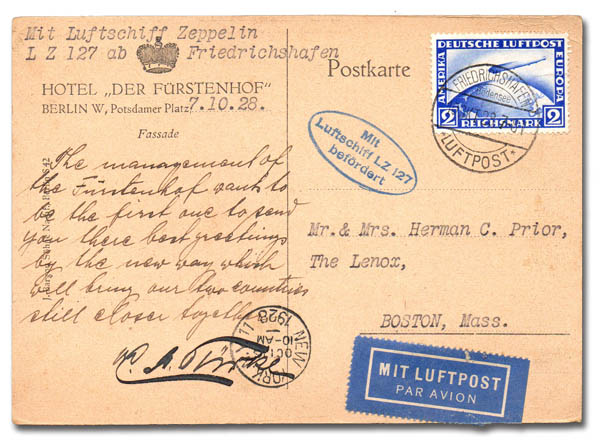 Mit Luftschiff Zeppelin
L Z 127 ab Friedrichshafen
HOTEL „DER FÜRSTENHOF"
BERLIN W, Potsdamer Platz 7.10.28.
Fassade
Postkarte
The management of
the Fürstenhof want to
be the first one to send
you there best greetings
by the new way which
will bring our two countries
still closer together
Mit
Luftschiff LZ 127
befördert
DEUTSCHE LUFTPOST
AMERIKA
EUROPA
2 REICHSMARK 2
FRIEDRICHSHAFEN
Bodensee
LUFTPOST
Mr. & Mrs. Herman C. Prior,
The Lenox,
BOSTON, Mass.
NEW YORK
OCT
10-AM
1928
11
MIT LUFTPOST
PAR AVION